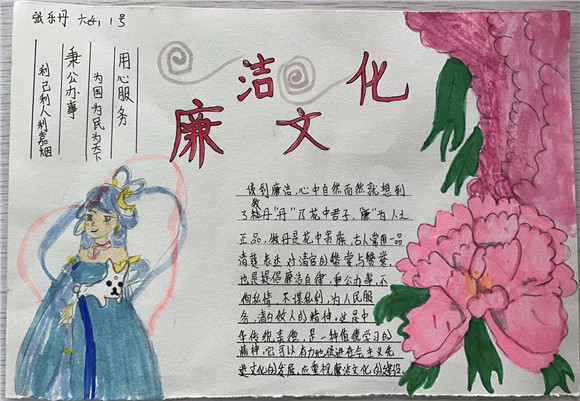 张乐丹 六(4) 1号
用心服务
为国为民为天下
秉公办事
利己利人利
廉洁文化
谈到廉洁,心中自然而然就想到
了牡丹"丹"乃花中君子,"廉"为人之
正品,牡丹是花中贵族,古人常用一品
清莲表达对清官的赞赏与赞誉
也是提倡廉洁自律,秉公办事,不
徇私情,不谋私利,为人民服
务,清白做人的精神。这是中
华传统美德,是一种值得学习的
精神,它可以有力地促进社会主义先
进文化的发展,应重视廉洁文化的建设